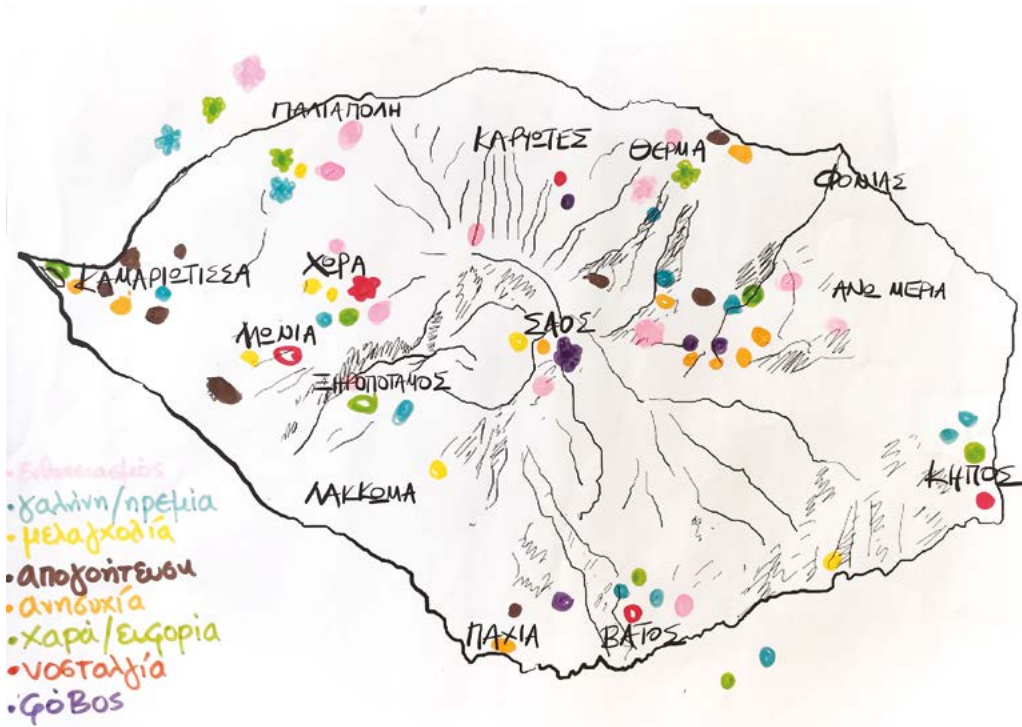 ΠΑΛΙΑΠΟΛΗ
ΚΑΡΥΩΤΕΣ
ΘΕΡΜΑ
ΦΟΝΙΑΣ
ΚΑΜΑΡΙΩΤΙΣΣΑ
ΧΩΡΑ
ΑΝΩ ΜΕΡΙΑ
ΛΩΝΙΑ
ΣΑΟΣ
ΞΗΡΟΠΟΤΑΜΟΣ
ΛΑΚΚΩΜΑ
ΚΗΠΟΣ
ΠΑΧΙΑ
ΒΑΤΟΣ
• Ενθουσιασμός
• γαλήνη/ηρεμία
• μελαγχολία
• απογοήτευση
• ανησυχία
• χαρά/ευφορία
• νοσταλγία
• φόβος